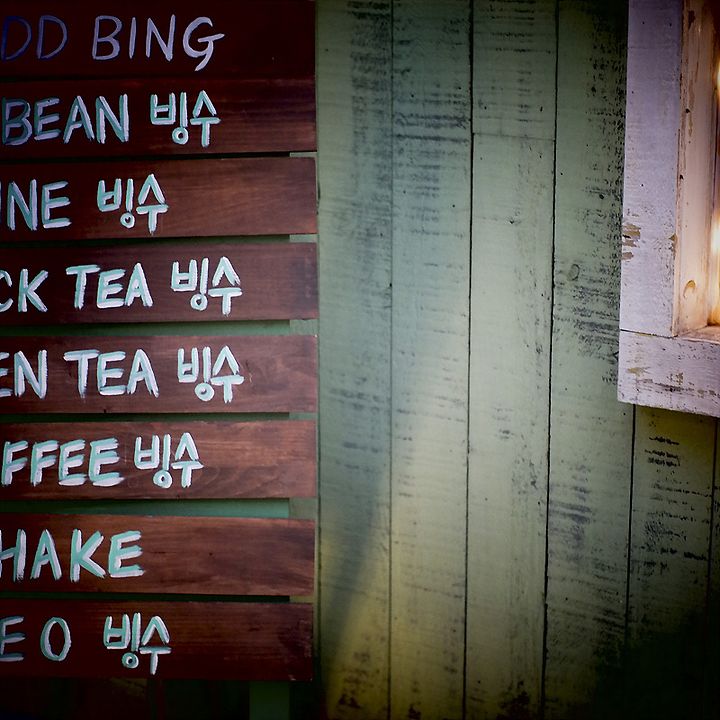 DD BING
BEAN 빙수
INE 빙수
CK TEA 빙수
EN TEA 빙수
FFEE 빙수
HAKE
EO 빙수